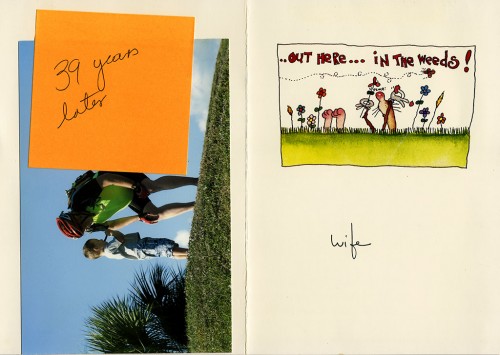 39 years
later
..OUT HERE.... iN THE WEEDS!
wife